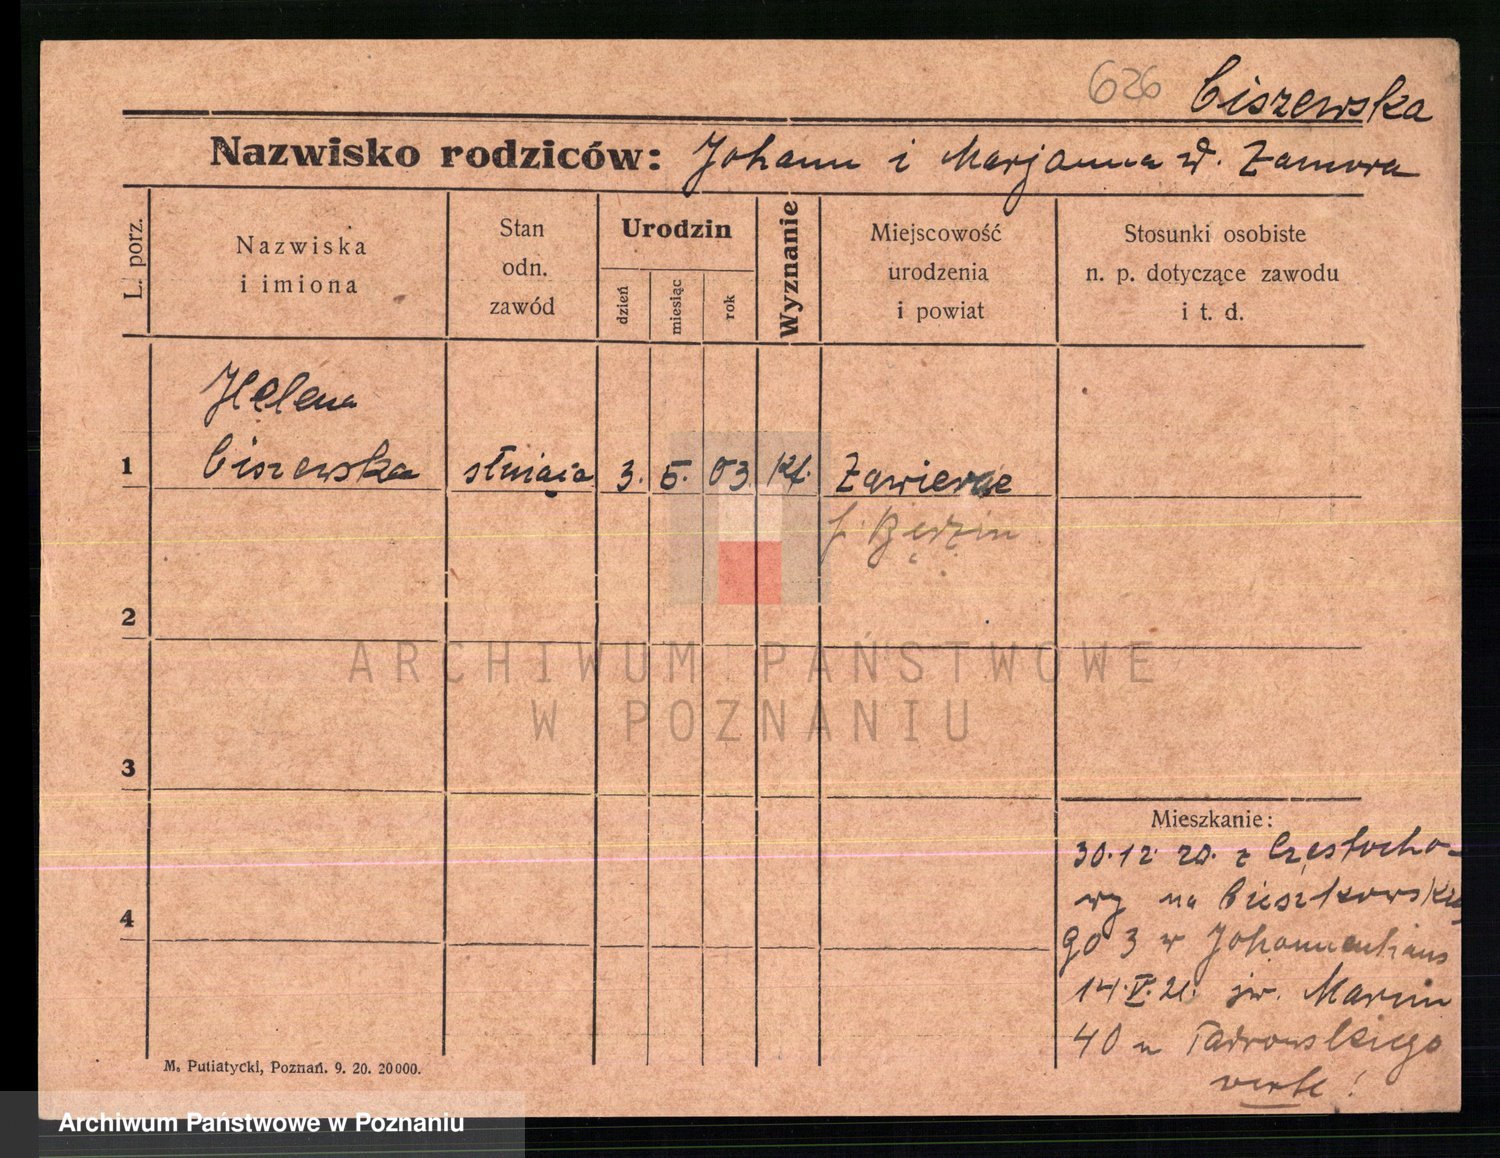 626 Ciszewska
Nazwisko rodziców: Johann i Marjanna d. Zamora
L. porz.
Nazwiska
i imiona
Stan
odn.
zawód
Urodzin
dzień
miesiąc
rok
Wyznanie
Miejscowość
urodzenia
i powiat
Stosunki osobiste
n. p. dotyczące zawodu
i t. d.
Helena
1 Ciszewska służąca 3. 5. 03 kt. Zawierce
Będzin
2
ARCHIWUM PAŃSTWOWE
W POZNANIU
3
Mieszkanie:
30.12 20. z Częstocho-
wy na Cieszkowskie
4
go 3 w Johannenhaus
14.V.21. św. Marcin
40 u
verte!
M. Putiatycki, Poznań. 9. 20. 20000.
Archiwum Państwowe w Poznaniu